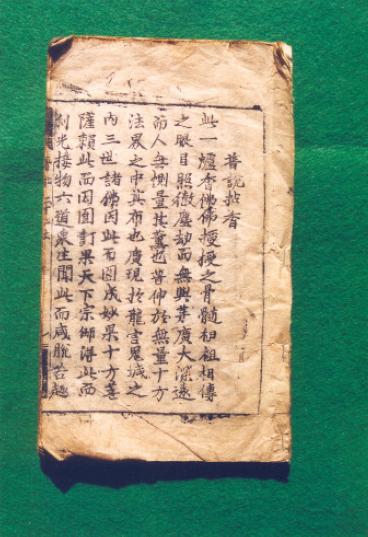 普說拈香
此一爐香佛佛授授之骨髓祖祖相傳
之眼目照徹塵劫而無與等廣大深遠
而人無惻量其驚也普伸於無量十方
法界之中其布也廣現於龍宮鬼城之
內三世諸佛因此而圓成妙果十方菩
薩賴此而因圓訂果天下宗師得此而
光接物六道衆生聞此而咸脫苦趣